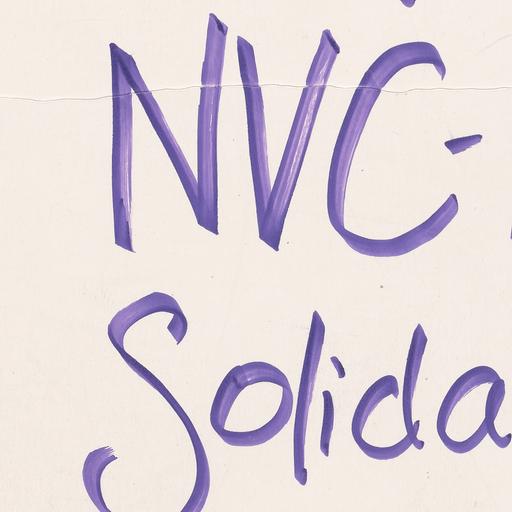 NVC-
Solida